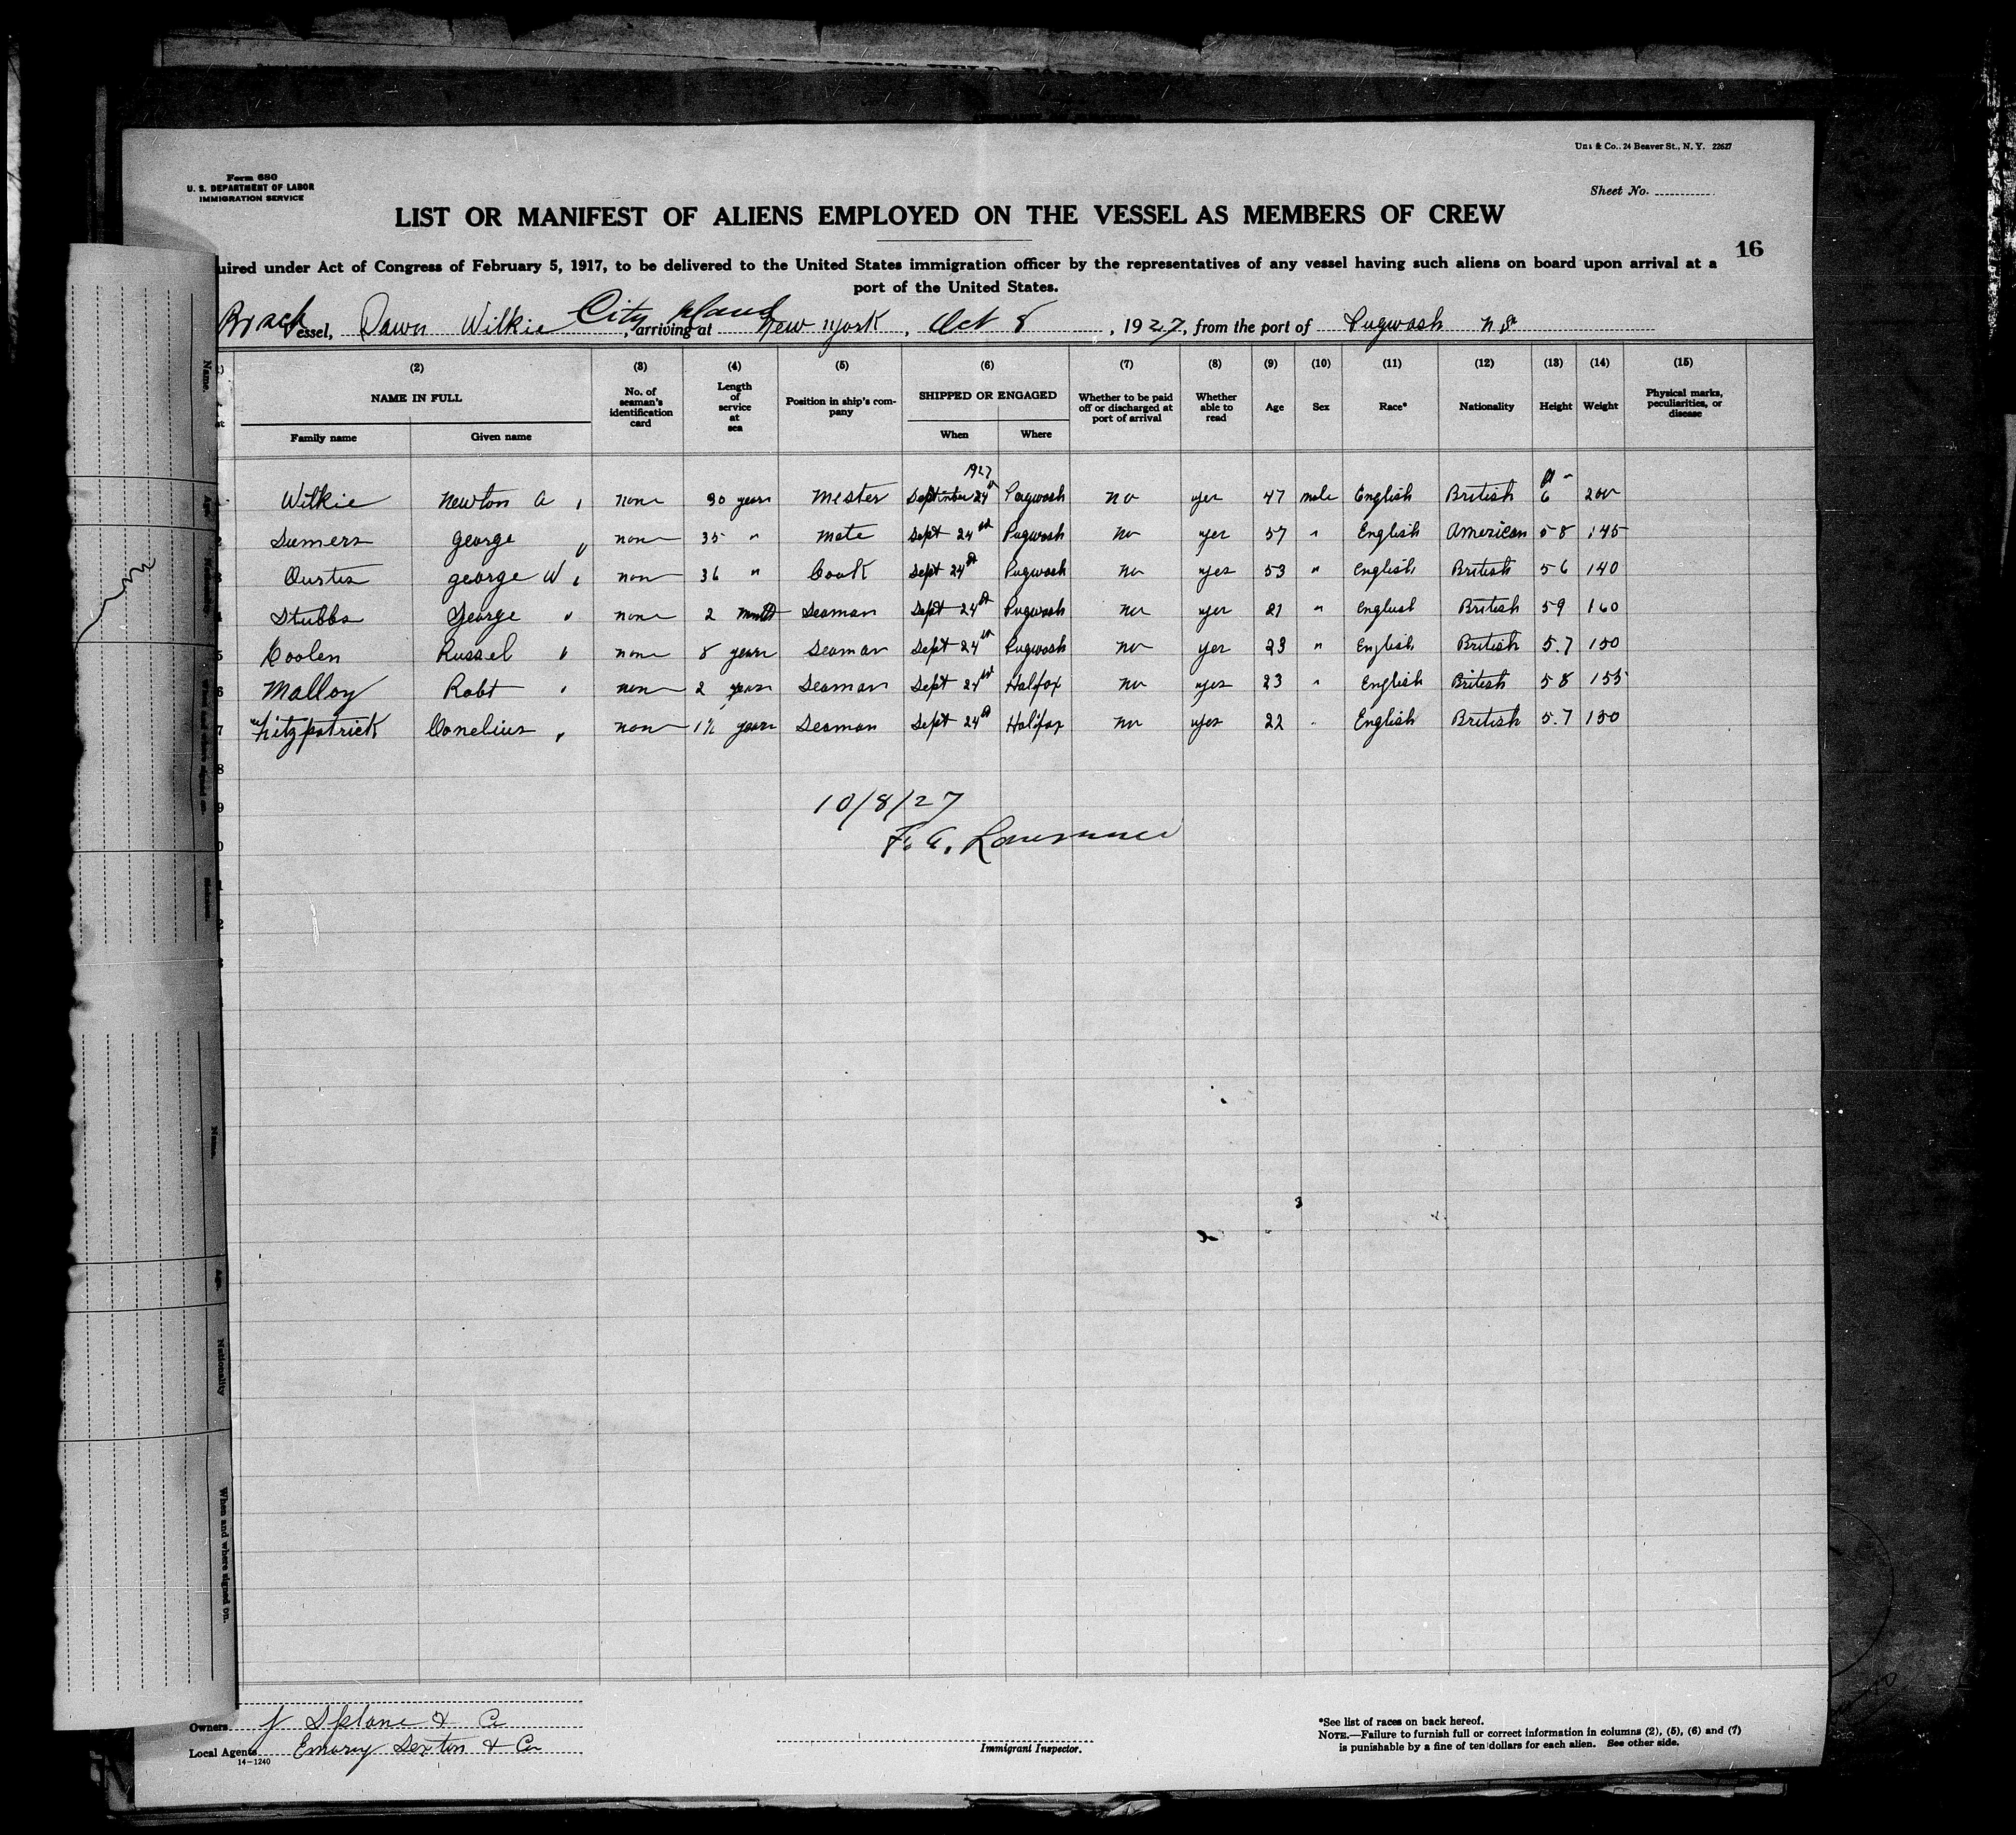 Uns & Co., 24 Beaver St., N. Y. 22627
Form 680
U. S. DEPARTMENT OF LABOR
IMMIGRATION SERVICE
Sheet No.
LIST OR MANIFEST OF ALIENS EMPLOYED ON THE VESSEL AS MEMBERS OF CREW
16
uired under Act of Congress of February 5, 1917, to be delivered to the United States immigration officer by the representatives of any vessel having such aliens on board upon arrival at a
port of the United States.
essel, Dawn Wilkie, arriving at City Island New York, Oct 8, 1927, from the port of Pugwash N S
(2) (3) (4) (5) (6) (7) (8) (9) (10) (11) (12) (13) (14) (15)
NAME IN FULL No. of seaman's identification card Length of service at sea Position in ship's company SHIPPED OR ENGAGED Whether to be paid off or discharged at port of arrival Whether able to read Age Sex Race* Nationality Height Weight Physical marks, peculiarities, or disease
Family name Given name When Where
1927
Wilkie Newton A none 30 years Mester September 24 Pugwash no yes 47 male English British 6 200
2 Sumers george none 35 " Mate Sept 24 Pugwash no yes 57 " English American 5 8 145
3 george W none 36 " Cook Sept 24 Pugwash no yes 53 " English British 5 6 140
4 Stubbs George none 2 months Seaman Sept 24 Pugwash no yes 21 " English British 5 9 160
5 Coolen Russel none 8 years Seaman Sept 24 Pugwash no yes 23 " English British 5.7 150
6 Malloy Robt none 2 years Seaman Sept 24 Halfox no yes 23 " English British 5 8 155
7 Fitzpatrick Conelius none 1½ years Seaman Sept 24 Halifax no yes 22 " English British 5.7 150
8
9
10/8/27
Owners J & Co
Local Agents Emory Sexton & Co
14-1240
Immigrant Inspector.
*See list of races on back hereof.
NOTE.—Failure to furnish full or correct information in columns (2), (5), (6) and (7)
is punishable by a fine of ten dollars for each alien. See other side.
Name.
Age.
Nationality
When and where signed on.
Name.
Age.
Nationality
When and where signed on.